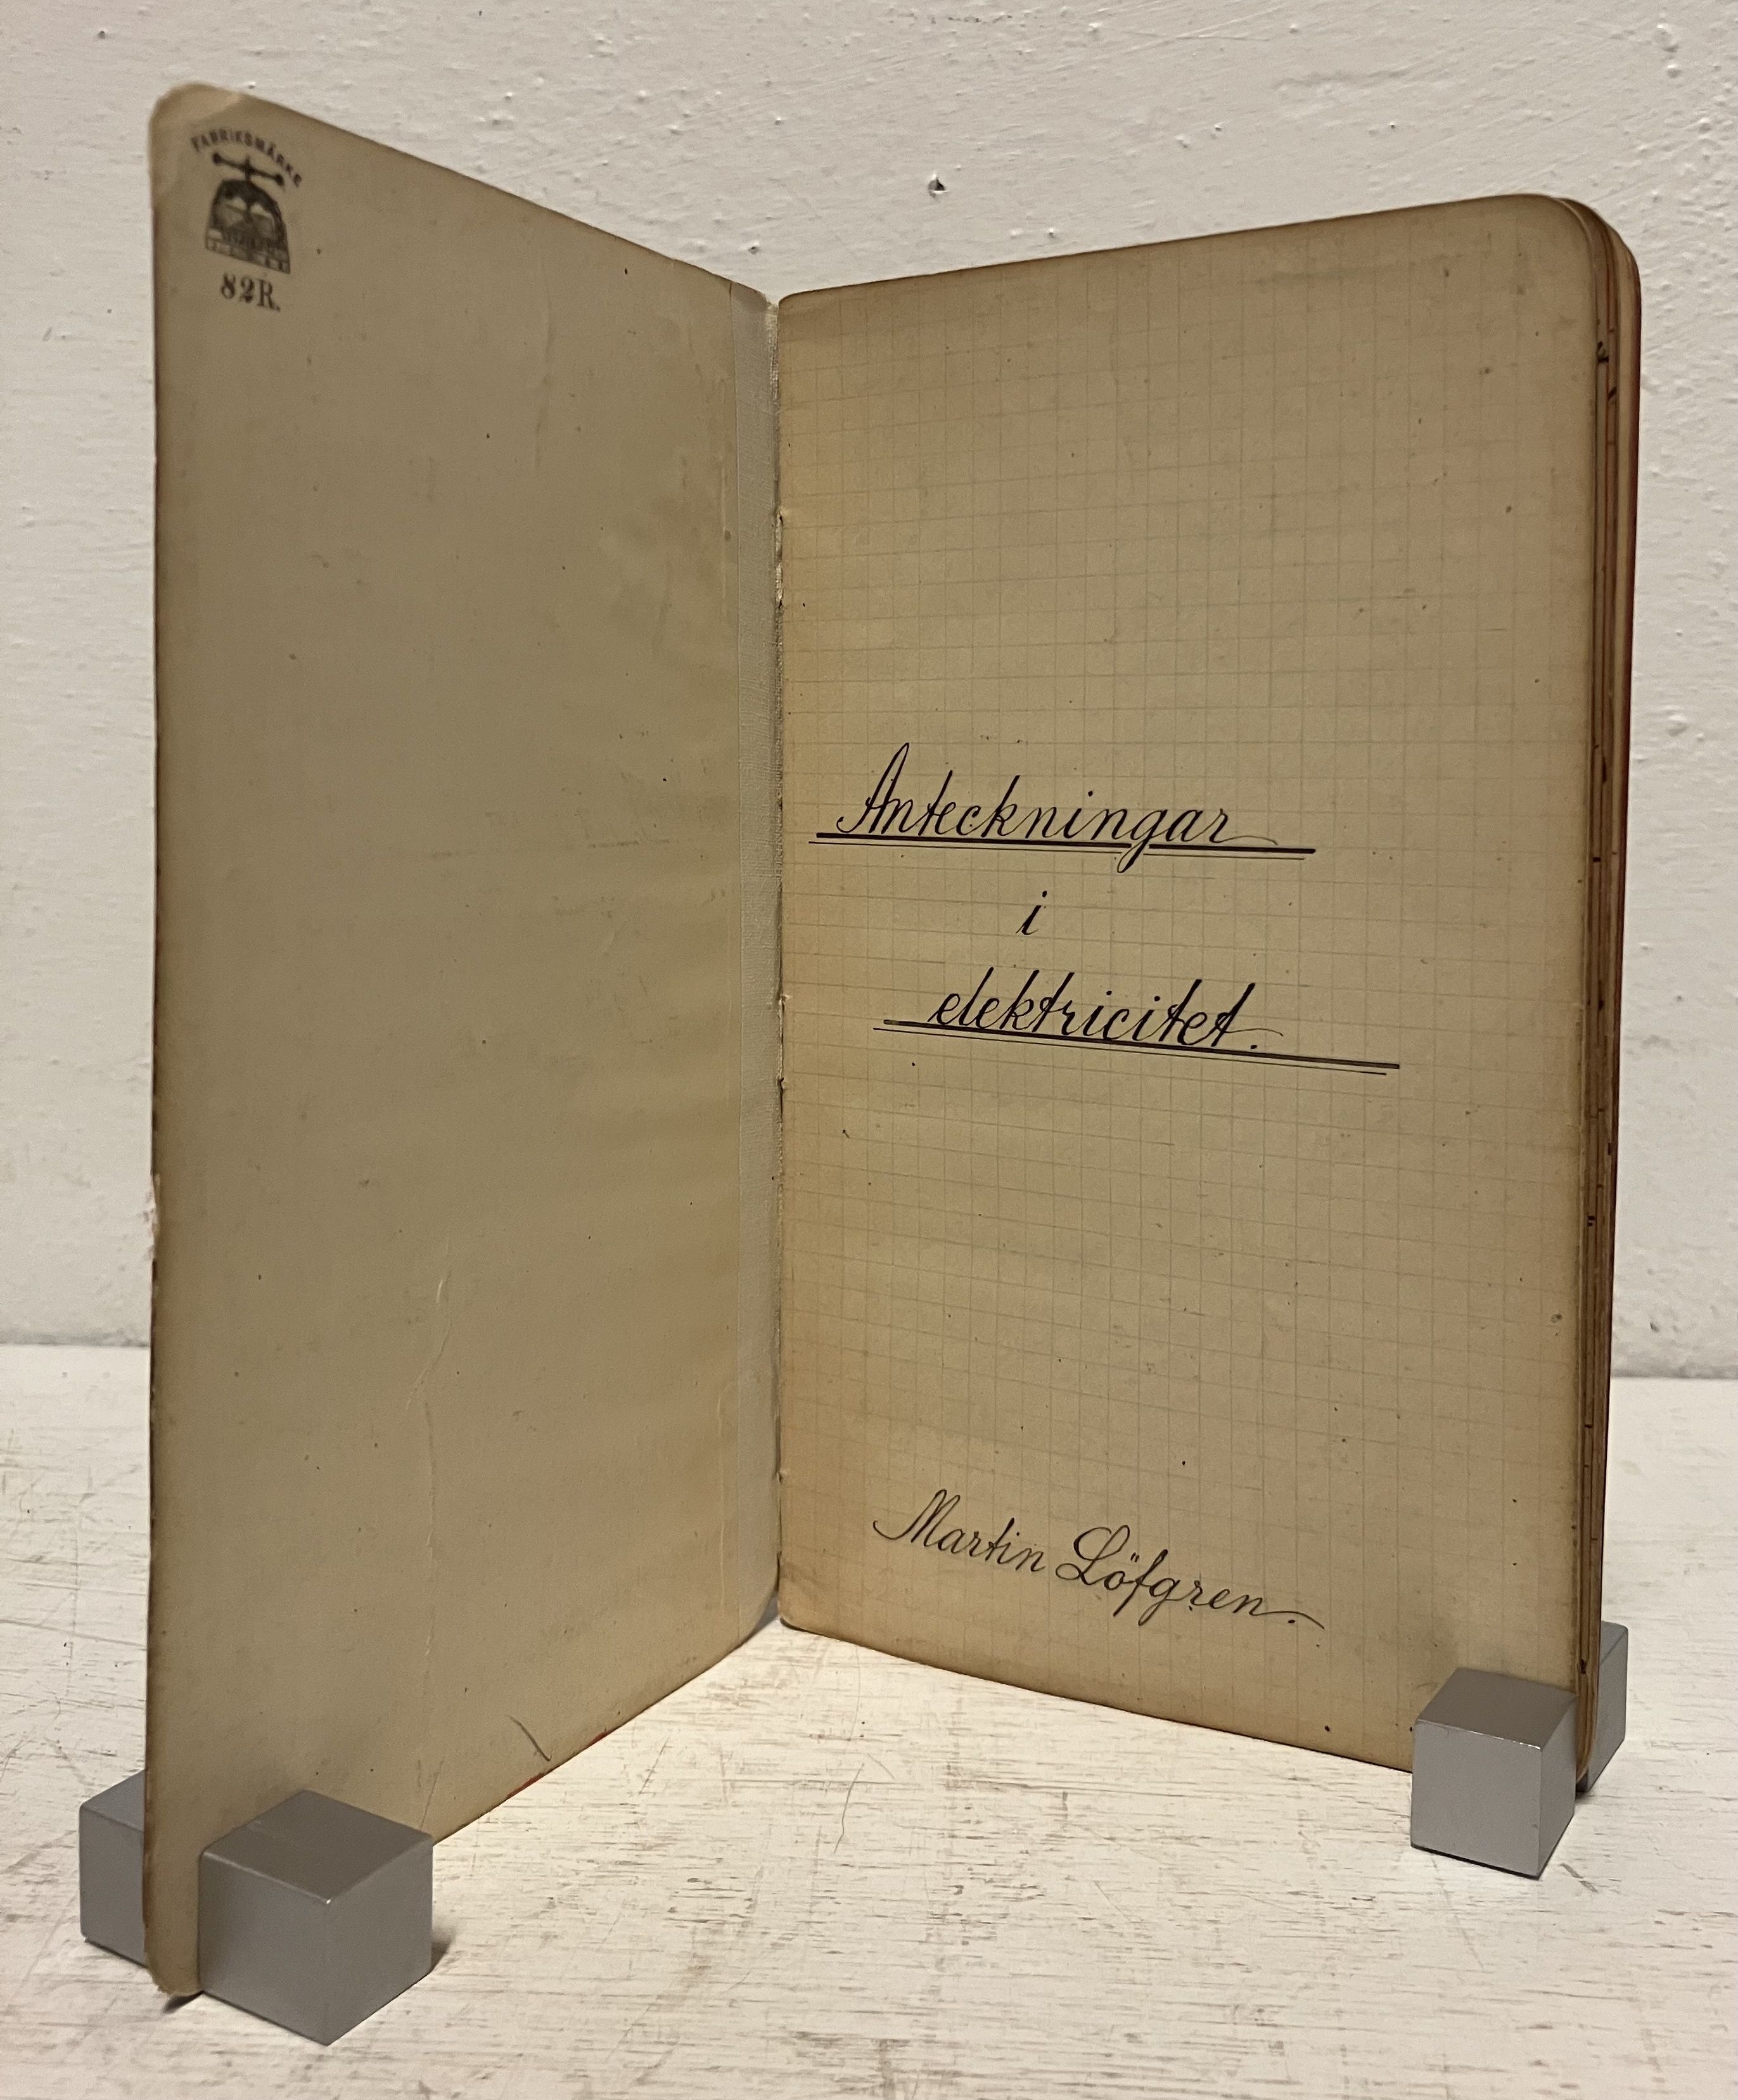 FABRIKSMÄRKE
82R.
Anteckningar
i
elektricitet.
Martin Löfgren.